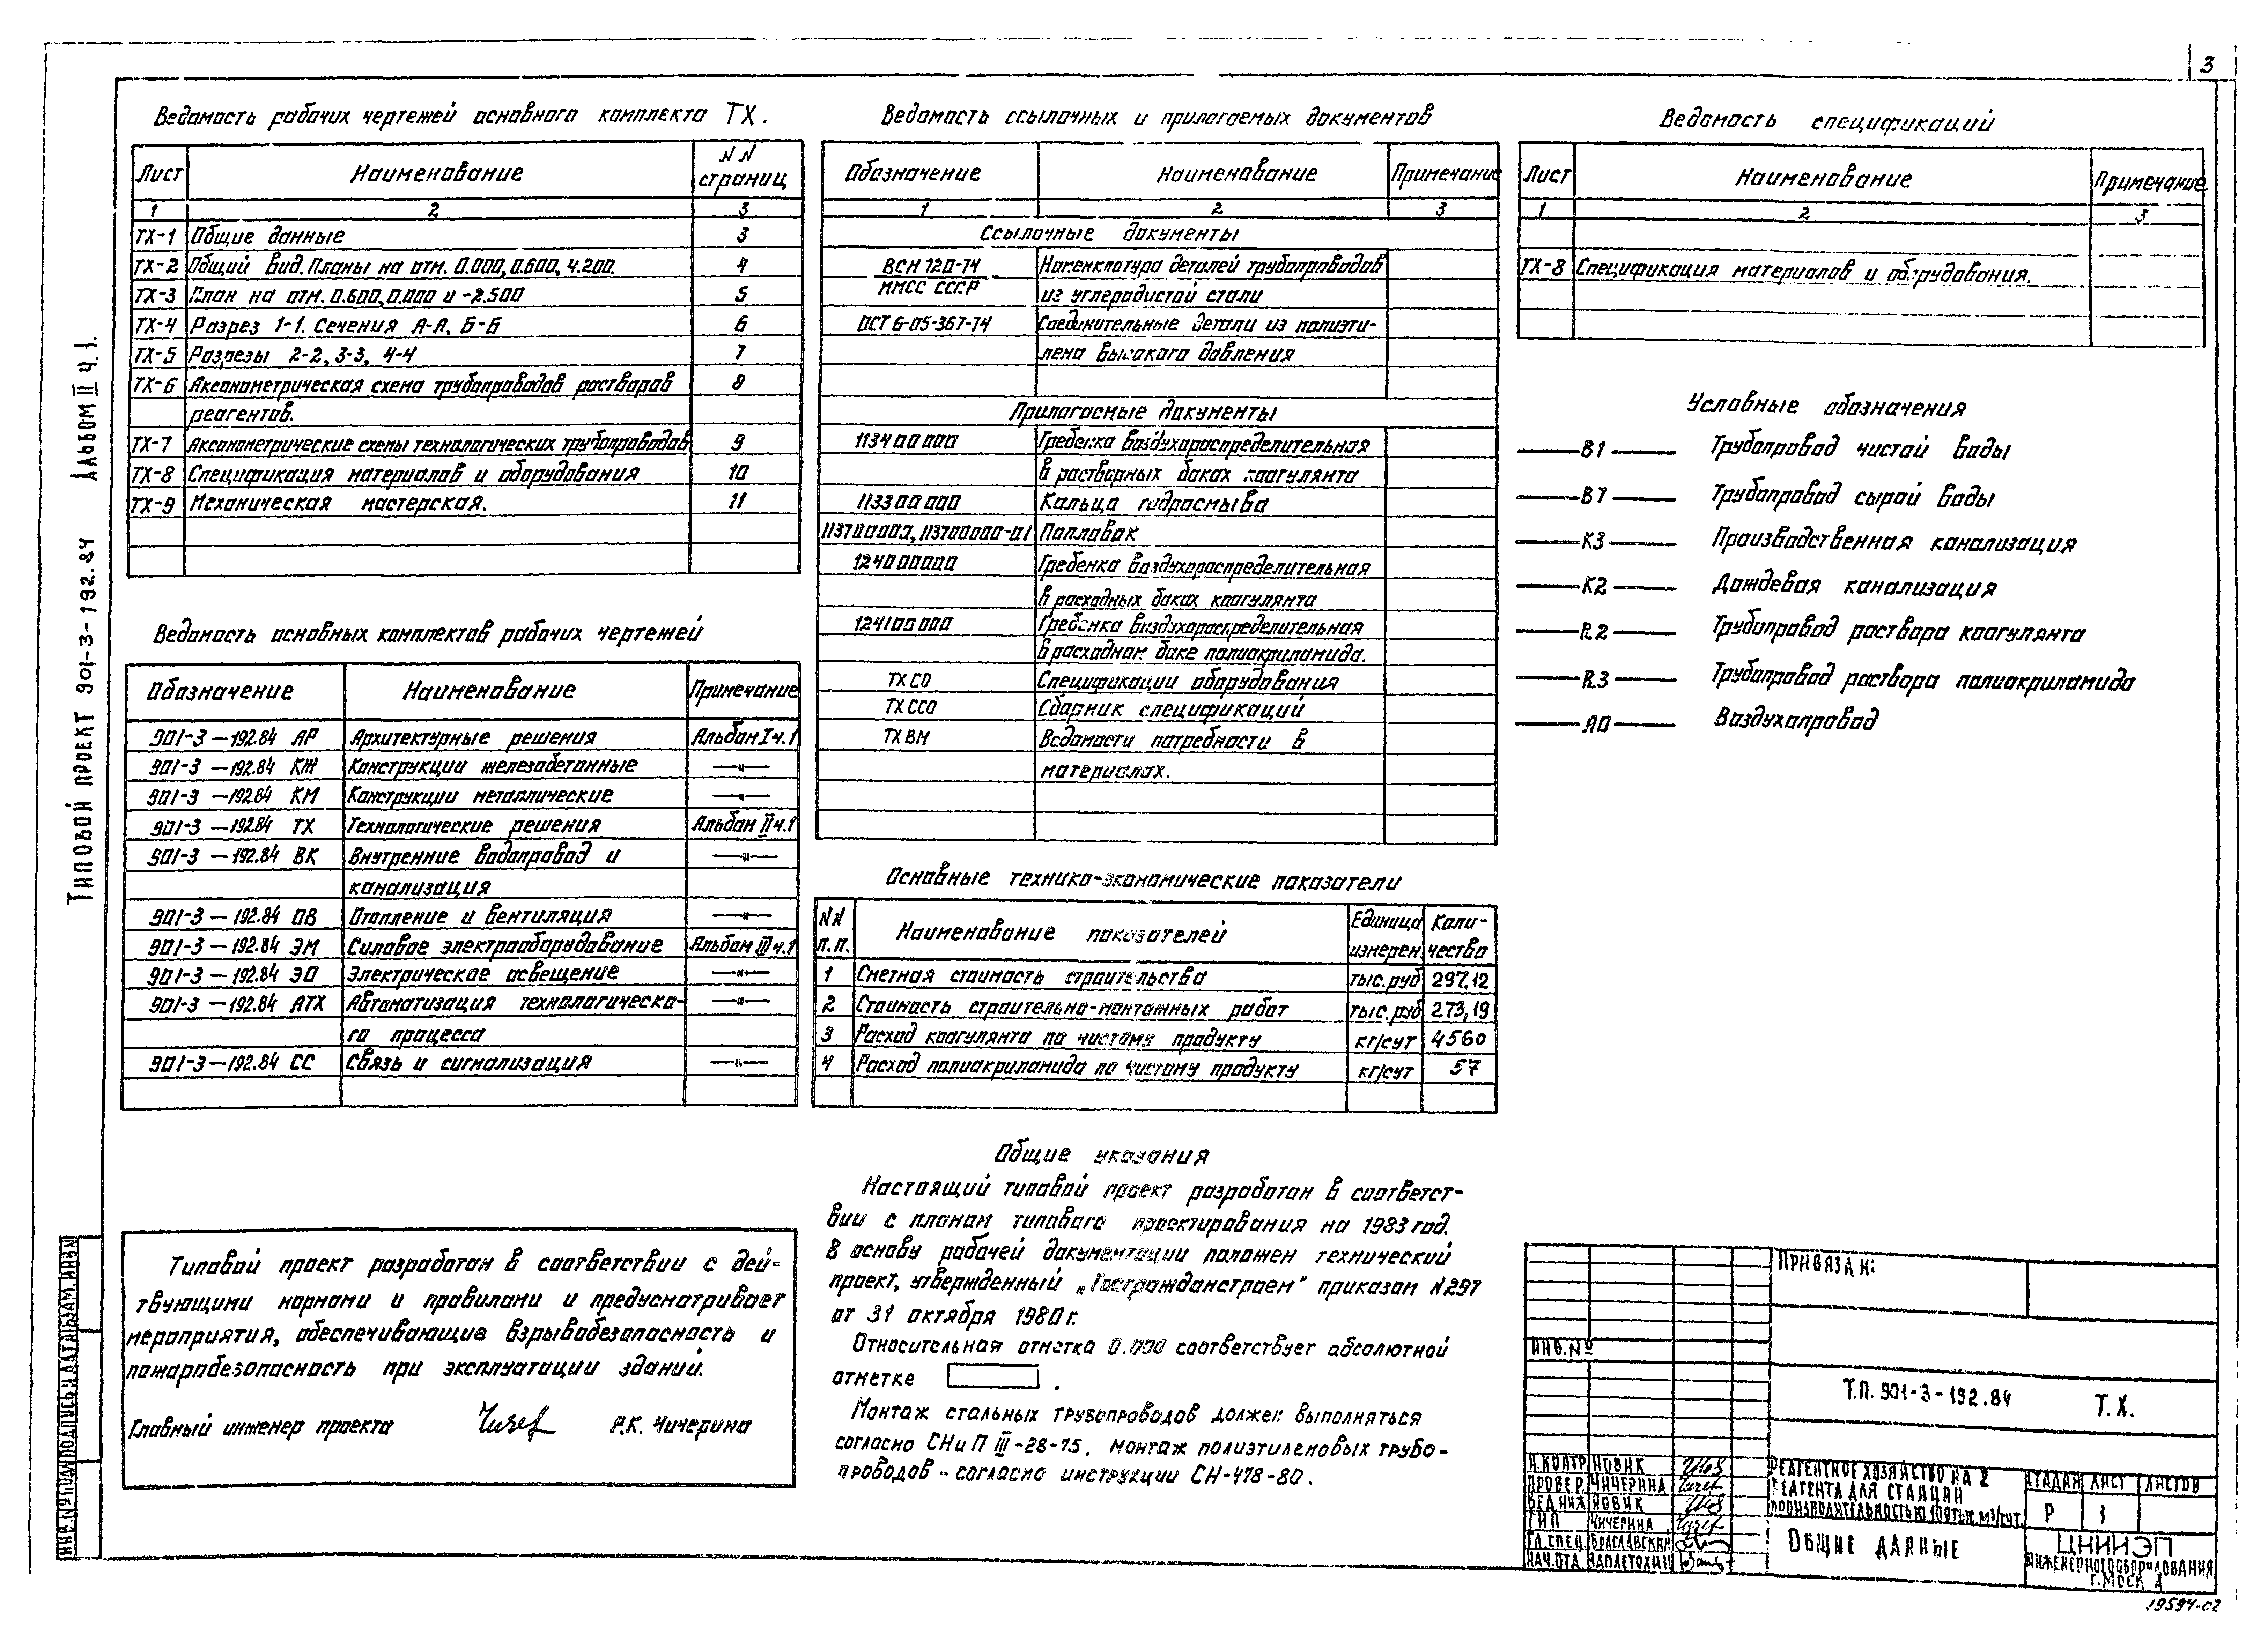 3
Ведомость рабочих чертежей основного комплекта ТХ.
Лист Наименование NN страниц
1 2 3
ТХ-1 Общие данные 3
ТХ-2 Общий вид. Планы на отм. 0.000, 0.600, 4.200. 4
ТХ-3 План на отм. 0.600, 0.000 и -2.500 5
ТХ-4 Разрез 1-1. Сечения А-А, Б-Б 6
ТХ-5 Разрезы 2-2, 3-3, 4-4 7
ТХ-6 Аксонометрическая схема трубопроводов растворов 8
реагентов.
ТХ-7 Аксонометрические схемы технологических трубопроводов 9
ТХ-8 Спецификация материалов и оборудования 10
ТХ-9 Механическая мастерская. 11
Ведомость основных комплектов рабочих чертежей
Обозначение Наименование Примечание
901-3-192.84 АР Архитектурные решения Альбом I ч.1
901-3-192.84 КЖ Конструкции железобетонные —"—
901-3-192.84 КМ Конструкции металлические —"—
901-3-192.84 ТХ Технологические решения Альбом II ч.1
901-3-192.84 ВК Внутренние водопровод и —"—
канализация
901-3-192.84 ОВ Отопление и вентиляция —"—
901-3-192.84 ЭМ Силовое электрооборудование Альбом III ч.1
901-3-192.84 ЭО Электрическое освещение —"—
901-3-192.84 АТХ Автоматизация технологическо- —"—
го процесса
901-3-192.84 СС Связь и сигнализация —"—
Типовой проект разработан в соответствии с дей-
твующими нормами и правилами и предусматривает
мероприятия, обеспечивающие взрывобезопасность и
пожаробезопасность при эксплуатации зданий.
Главный инженер проекта Р.К. Чичерина
Ведомость ссылочных и прилагаемых документов
Обозначение Наименование Примечание
1 2 3
Ссылочные документы
ВСН 120-74 Номенклатура деталей трубопроводов
ММСС СССР из углеродистой стали
ОСТ 6-05-367-74 Соединительные детали из полиэти-
лена высокого давления
Прилагаемые документы
113400000 Гребенка воздухораспределительная
в растворных баках коагулянта
113300000 Кольца гидросмыва
113700000, 113700000-01 Поплавок
124000000 Гребенка воздухораспределительная
в расходных баках коагулянта
124100000 Гребенка воздухораспределительная
в расходном баке полиакриламида.
ТХ СО Спецификации оборудования
ТХ ССО Сборник спецификаций
ТХ ВМ Ведомости потребности в
материалах.
Основные технико-экономические показатели
NN п.п. Наименование показателей Единица измерен. Коли-чество
1 Сметная стоимость строительства тыс.руб 297,12
2 Стоимость строительно-монтажных работ тыс.руб 273,19
3 Расход коагулянта по чистому продукту кг/сут 4560
4 Расход полиакриламида по чистому продукту кг/сут 57
Общие указания
Настоящий типовой проект разработан в соответст-
вии с планом типового проектирования на 1983 год.
В основу рабочей документации положен технический
проект, утвержденный „Госгражданстроем" приказом N297
от 31 октября 1980г.
Относительная отметка 0.000 соответствует абсолютной
отметке .
Монтаж стальных трубопроводов должен выполняться
согласно СНиП III-28-75. Монтаж полиэтиленовых трубо-
проводов - согласно инструкции СН-478-80.
Ведомость спецификаций
Лист Наименование Примечание
1 2 3
ТХ-8 Спецификация материалов и оборудования.
Условные обозначения
В1 Трубопровод чистой воды
В7 Трубопровод сырой воды
К3 Производственная канализация
К2 Дождевая канализация
R2 Трубопровод раствора коагулянта
R3 Трубопровод раствора полиакриламида
А0 Воздухопровод
ПРИВЯЗАН:
ИНВ.№
Т.П. 901-3-192.84 Т.Х.
Н.КОНТР НОВИК
ПРОВЕР. ЧИЧЕРИНА
ВЕД.ИНЖ НОВИК
ГИП ЧИЧЕРИНА
ГЛ.СПЕЦ. БРАСЛАВСКИЙ
НАЧ.ОТД
РЕАГЕНТНОЕ ХОЗЯЙСТВО НА 2
РЕАГЕНТА ДЛЯ СТАНЦИИ
ПРОИЗВОДИТЕЛЬНОСТЬЮ 100 ТЫС. М3/СУТ.
СТАДИЯ ЛИСТ ЛИСТОВ
Р 1
ОБЩИЕ ДАННЫЕ
ЦНИИЭП
ИНЖЕНЕРНОГО ОБОРУДОВАНИЯ
Г. МОСКВА
19594-02
ТИПОВОЙ ПРОЕКТ 901-3-192.84 АЛЬБОМ II Ч.1.
ИНВ.№ ПОДЛ ПОДПИСЬ И ДАТА ВЗАМ.ИНВ.N